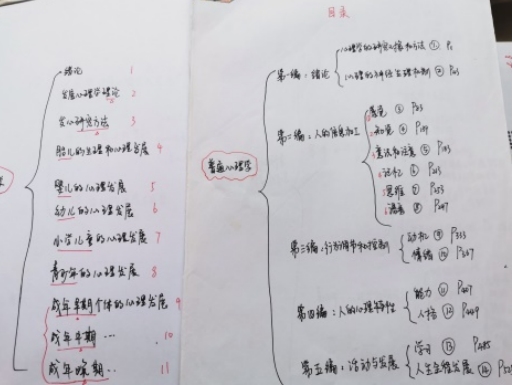 绪论 1
发展心理学理论 2
发心研究方法 3
胎儿的生理和心理发展 4
婴儿的心理发展 5
幼儿的心理发展 6
小学儿童的心理发展 7
青少年的心理发展 8
成年早期个体的心理发展 9
成年中期… 10
成年晚期.. 11
目录
普通心理学
第一编：绪论
心理学的研究对象和方法 ① P1
心理的神经生理机制 ②
第二编：人的信息加工
感觉 ③
知觉 ④
意识和注意 ⑤
记忆 ⑥
思维 ⑦
语言 ⑧
第三编：行为调节和控制
动机 ⑨
情绪 ⑩
第四编：人的心理特性
能力 ⑪
人格 ⑫
第五编：活动与发展
学习 ⑬ P485
人生全程发展 ⑭